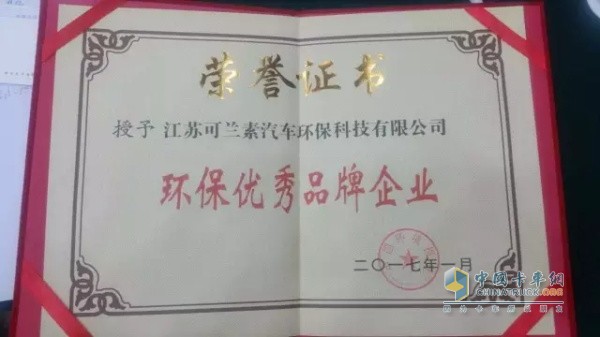 荣誉证书
授予 江苏可兰素汽车环保科技有限公司
环保优秀品牌企业
二〇一七年一月
中国卡车网
CHINATRUCK.ORG